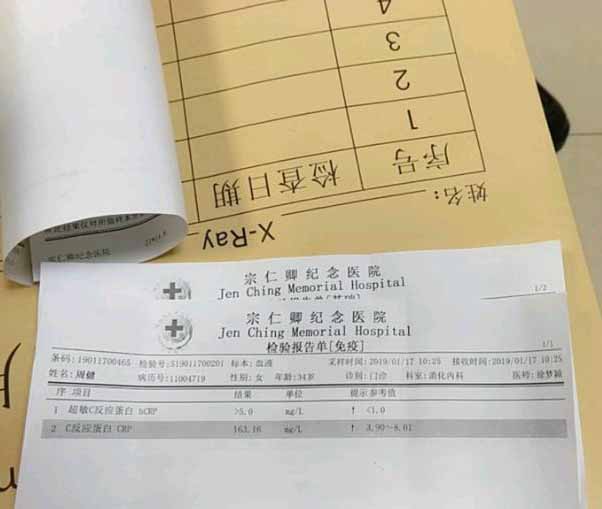 4
3
2
1
序号 检查日期
姓名:
X-Ray
宗仁卿纪念医院
宗仁卿纪念医院
Jen Ching Memorial Hospital
1/2
宗仁卿纪念医院
Jen Ching Memorial Hospital
检验报告单[免疫]
1/1
条码:19011700465 检验号:S19011700201 标本:血液 采样时间:2019/01/17 10:25 接收时间:2019/01/17 10:25
姓名:周健 病历号:11004719 性别:女 年龄:34岁 诊别:门诊 科室:消化内科 医师:徐梦颖
序 项目 结果 单位 提示 参考值
1 超敏C反应蛋白 hCRP >5.0 mg/L ↑ <1.0
2 C反应蛋白 CRP 163.16 mg/L ↑ 3.90~8.01